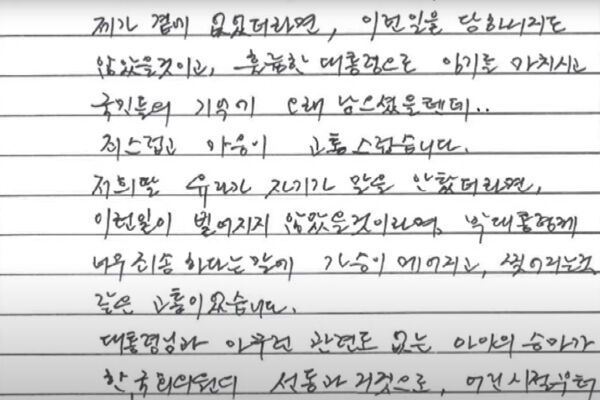 제가 곁에 없었더라면, 이런일을 당하시지도
않았을것이고, 훌륭한 대통령으로 임기를 마치시고
국민들의 기억에 오래 남으셨을텐데..
죄스럽고 마음이 고통스럽습니다.
저희딸 유라가 자기가 말을 안탔더라면,
이런일이 벌어지지 않았을것이라며, 박대통령께
너무 죄송하다는 말에 가슴이 메어지고, 찢어지는것
같은 고통이 있습니다.
대통령님과 아무런 관련도 없는 아이의 승마가
한 국회의원의 선동과 거짓으로, 어떤시점부터